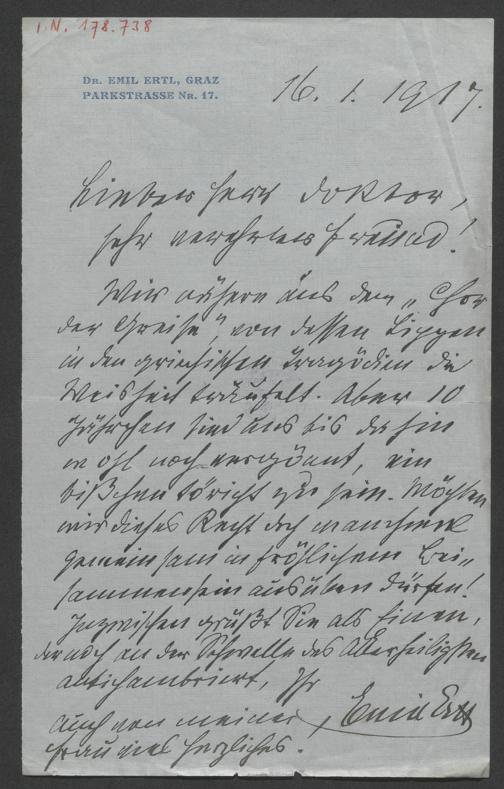 I.N. 178.738
DR. EMIL ERTL, GRAZ
PARKSTRASSE NR. 17.
16. 1. 1917.
Lieber Herr Doktor,
sehr verehrter Freund!
Wir nähern uns dem „Chor
der Greise", von dessen Lippen
in den griechischen Tragödien die
Weisheit träufelt. Aber 10
Jährchen sind uns bis dahin
wohl noch vergönnt, ein
bißchen töricht zu sein. Möchten
wir dieses Recht doch manchmal
gemeinsam in fröhlichem Bei-
sammensein ausüben dürfen!
Inzwischen grüßt Sie als Einen,
der noch an der Schwelle des Allerheiligsten
antichambriert, Ihr
Emil Ertl
Auch von meiner
Frau viel Herzliches.